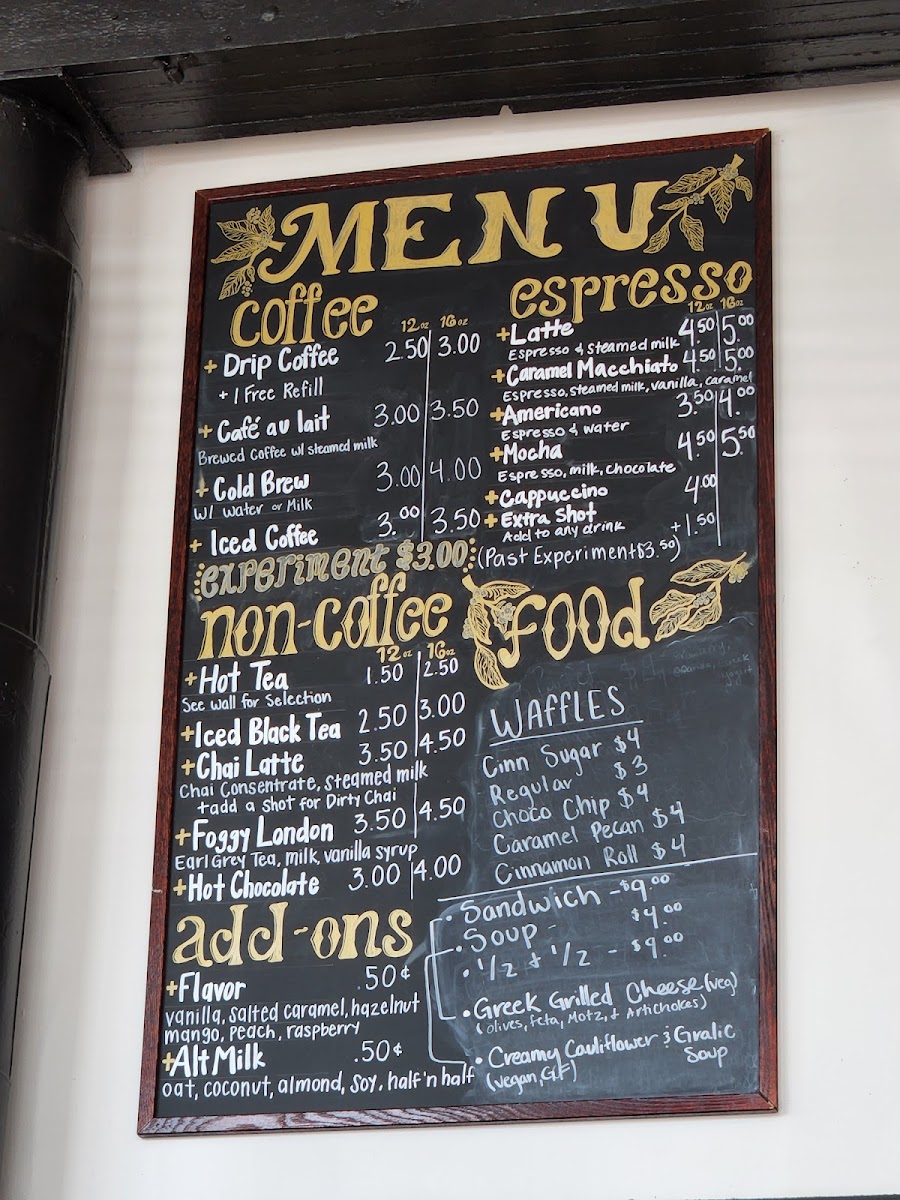 MENU
coffee
12oz 16oz
+Drip Coffee 2.50 3.00
+1 Free Refill
+Café au lait 3.00 3.50
Brewed Coffee w/ steamed milk
+Cold Brew 3.00 4.00
w/ water or Milk
+Iced Coffee 3.00 3.50
experiment $3.00
(Past Experiment $3.50)
espresso
12oz 16oz
+Latte 4.50 5.00
Espresso & steamed milk
+Caramel Macchiato 4.50 5.00
Espresso, steamed milk, vanilla, caramel
+Americano 3.50 4.00
Espresso & water
+Mocha 4.50 5.50
Espresso, milk, chocolate
+Cappuccino 4.00
+Extra Shot +1.50
Add to any drink
non-coffee
12oz 16oz
+Hot Tea 1.50 2.50
See wall for Selection
+Iced Black Tea 2.50 3.00
+Chai Latte 3.50 4.50
Chai Consentrate, steamed milk
+add a shot for Dirty Chai
+Foggy London 3.50 4.50
Earl Grey Tea, milk, vanilla syrup
+Hot Chocolate 3.00 4.00
add-ons
+Flavor .50¢
vanilla, salted caramel, hazelnut
mango, peach, raspberry
+Alt Milk .50¢
oat, coconut, almond, soy, half 'n half
FOOd
WAFFLES
Cinn Sugar $4
Regular $3
Choco Chip $4
Caramel Pecan $4
Cinnamon Roll $4
• Sandwich - $9.00
• Soup - $4.00
• 1/2 & 1/2 - $9.00
• Greek Grilled Cheese (veg)
(olives, feta, Motz, & Artichokes)
• Creamy Cauliflower & Gralic
Soup
(vegan, GF)